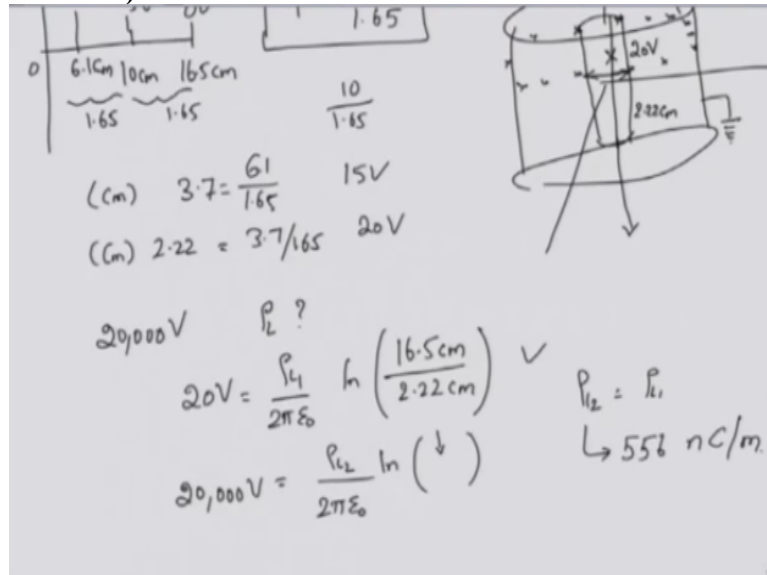 1.65
0 6.1cm 10cm 16.5cm
1.65 1.65
10/1.65
20V
2.22cm
(cm) 3.7 = 61/1.65 15V
(cm) 2.22 = 3.7/165 20V
20,000V ρL ?
20V = ρL1/2πε0 ln (16.5cm/2.22cm) ✓
ρL2 = ρL1
↳ 556 nC/m.
20,000V = ρL2/2πε0 ln (↓)